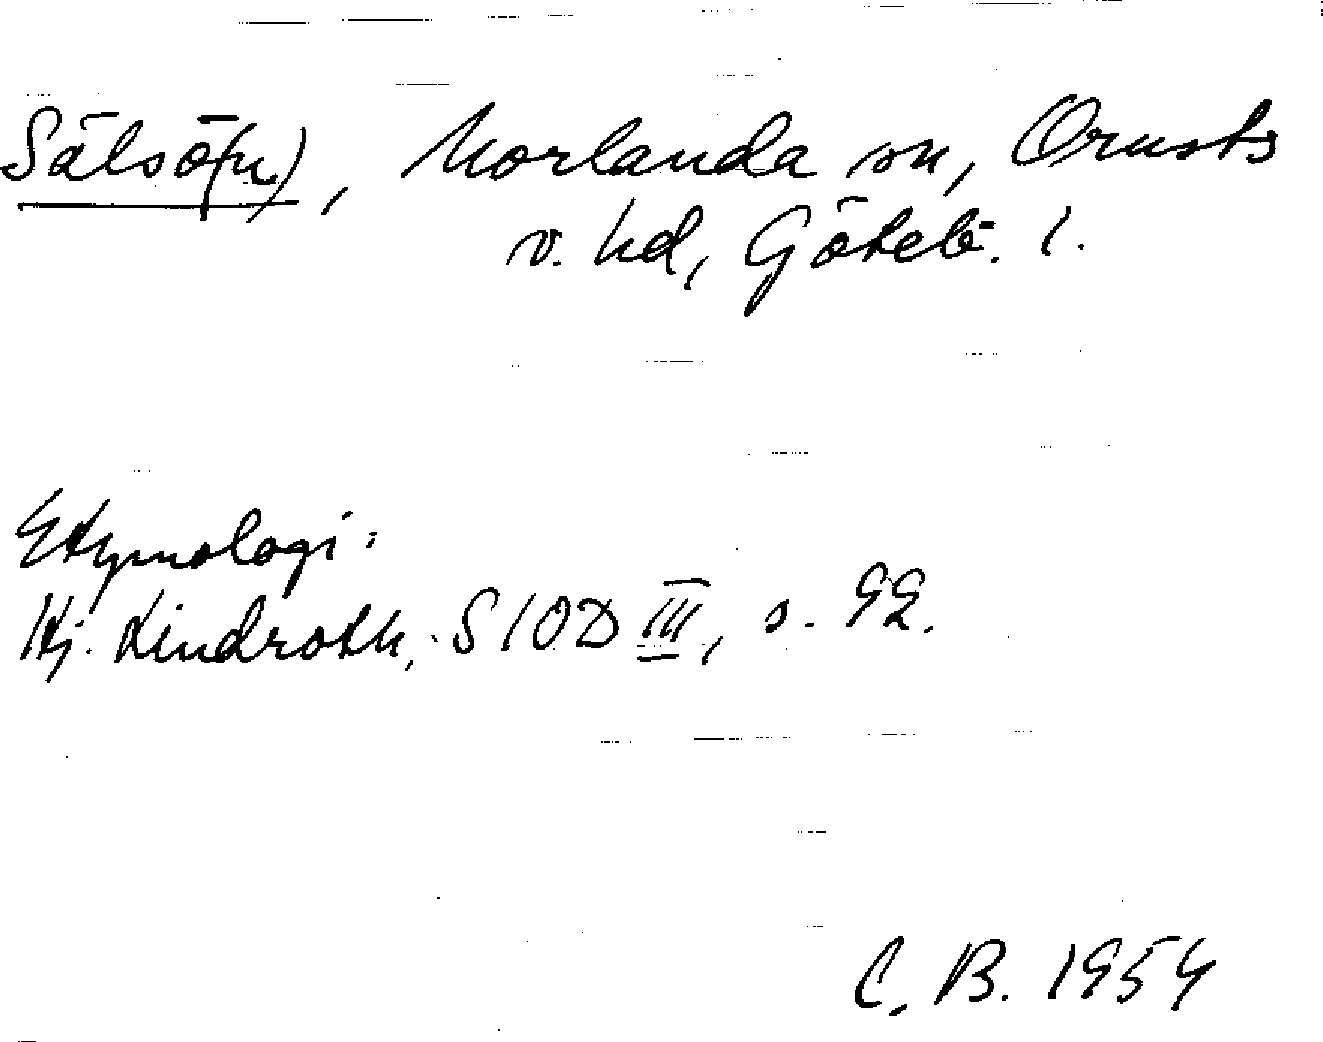 Sälsö(n), Morlanda sn, Orusts
v. hd, Göteb. l.
Etymologi:
Hj. Lindroth, SIOD III, s. 92.
C. B. 1954